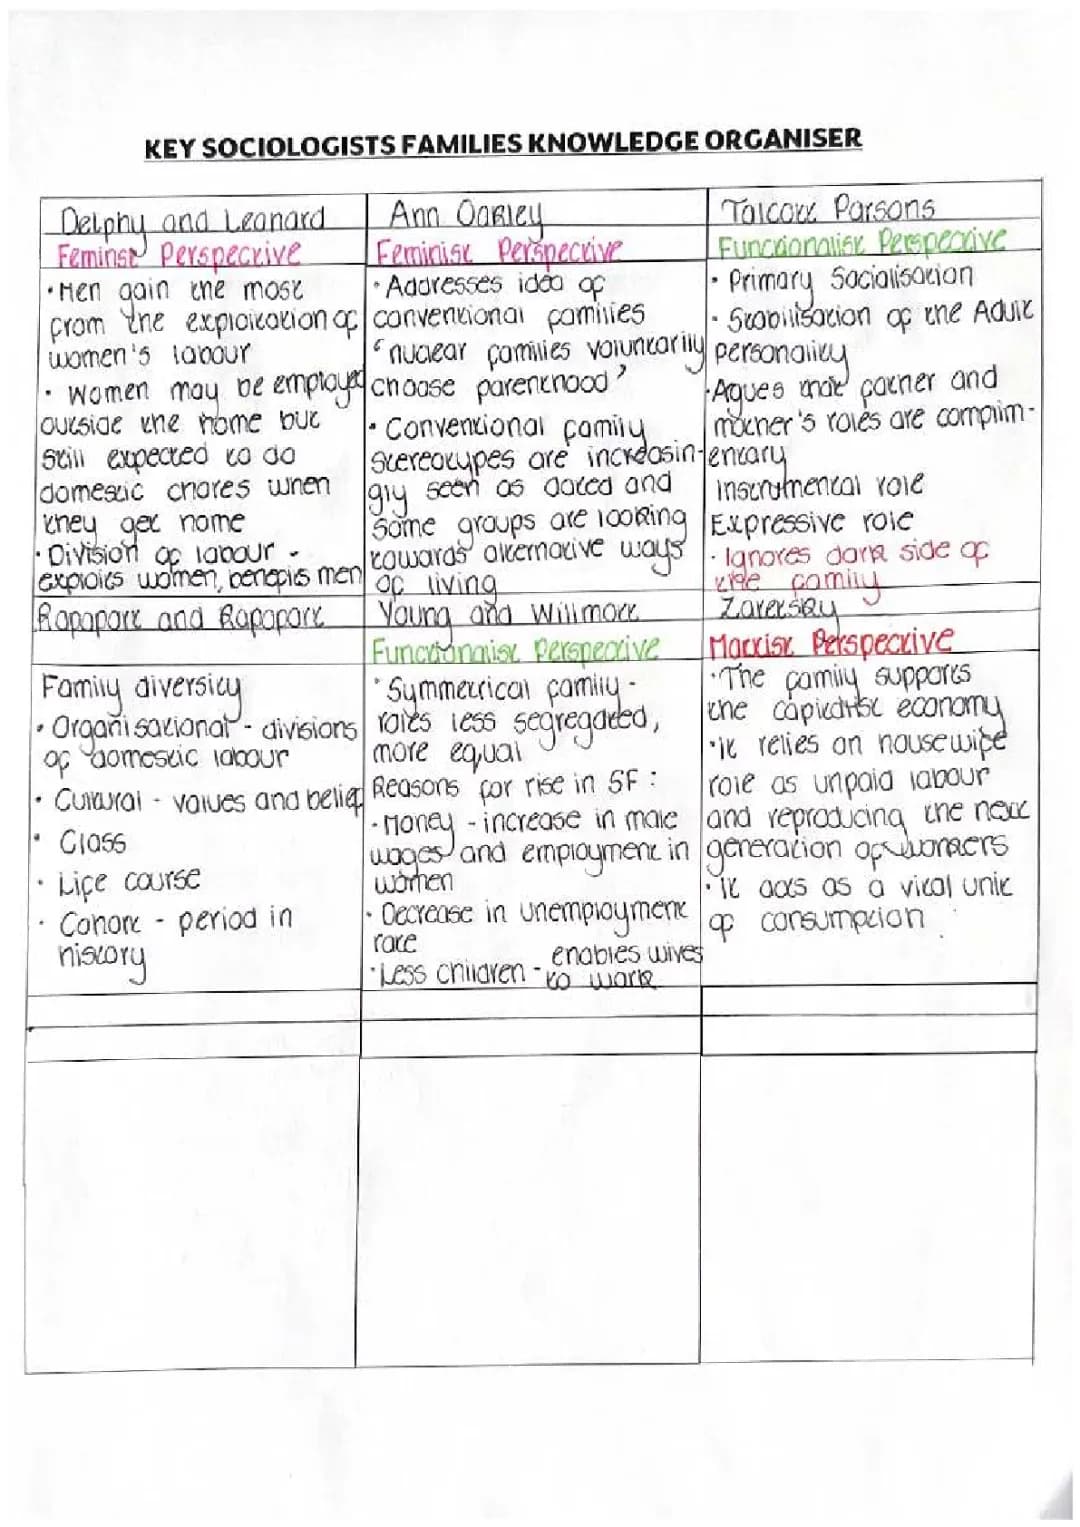 KEY SOCIOLOGISTS FAMILIES KNOWLEDGE ORGANISER
Delphy and Leonard
Feminst Perspective
• Men gain the most
from the exploitation of
women's labour
• women may be employed
outside the home but
still expected to do
domestic chores when
they get home
• Division of labour -
exploits women, benefis men
Ann Oakley
Feminist Perspective
• Addresses idea of
conventional families
'nuclear families voluntarily
choose parenthood'
• Conventional family
stereotypes are increasin-
gly seen as dated and
some groups are looking
towards alternative ways
of living
Talcott Parsons
Functionalist Perspective
• Primary Socialisation
• Stabilisation of the Adult
personality
• Agues that father and
mother's roles are complim-
entary
Instrumental role
Expressive role
• Ignores dark side of
the family
Rapaport and Rapaport
Family diversity
• Organisational - divisions
of domestic labour
• Cultural - values and belief
• Class
• Life course
• Cohort - period in
history
Young and Willmott
Functionalist Perspective
• Symmetrical family -
roles less segregated,
more equal
Reasons for rise in SF :
• Money - increase in male
wages and employment in
women
• Decrease in unemployment
rate
• Less children - enables wives
to work
Zaretsky
Marxist Perspective
• The family supports
the capitalist economy
• it relies on housewife
role as unpaid labour
and reproducing the next
generation of workers
• it acts as a vital unit
of consumption